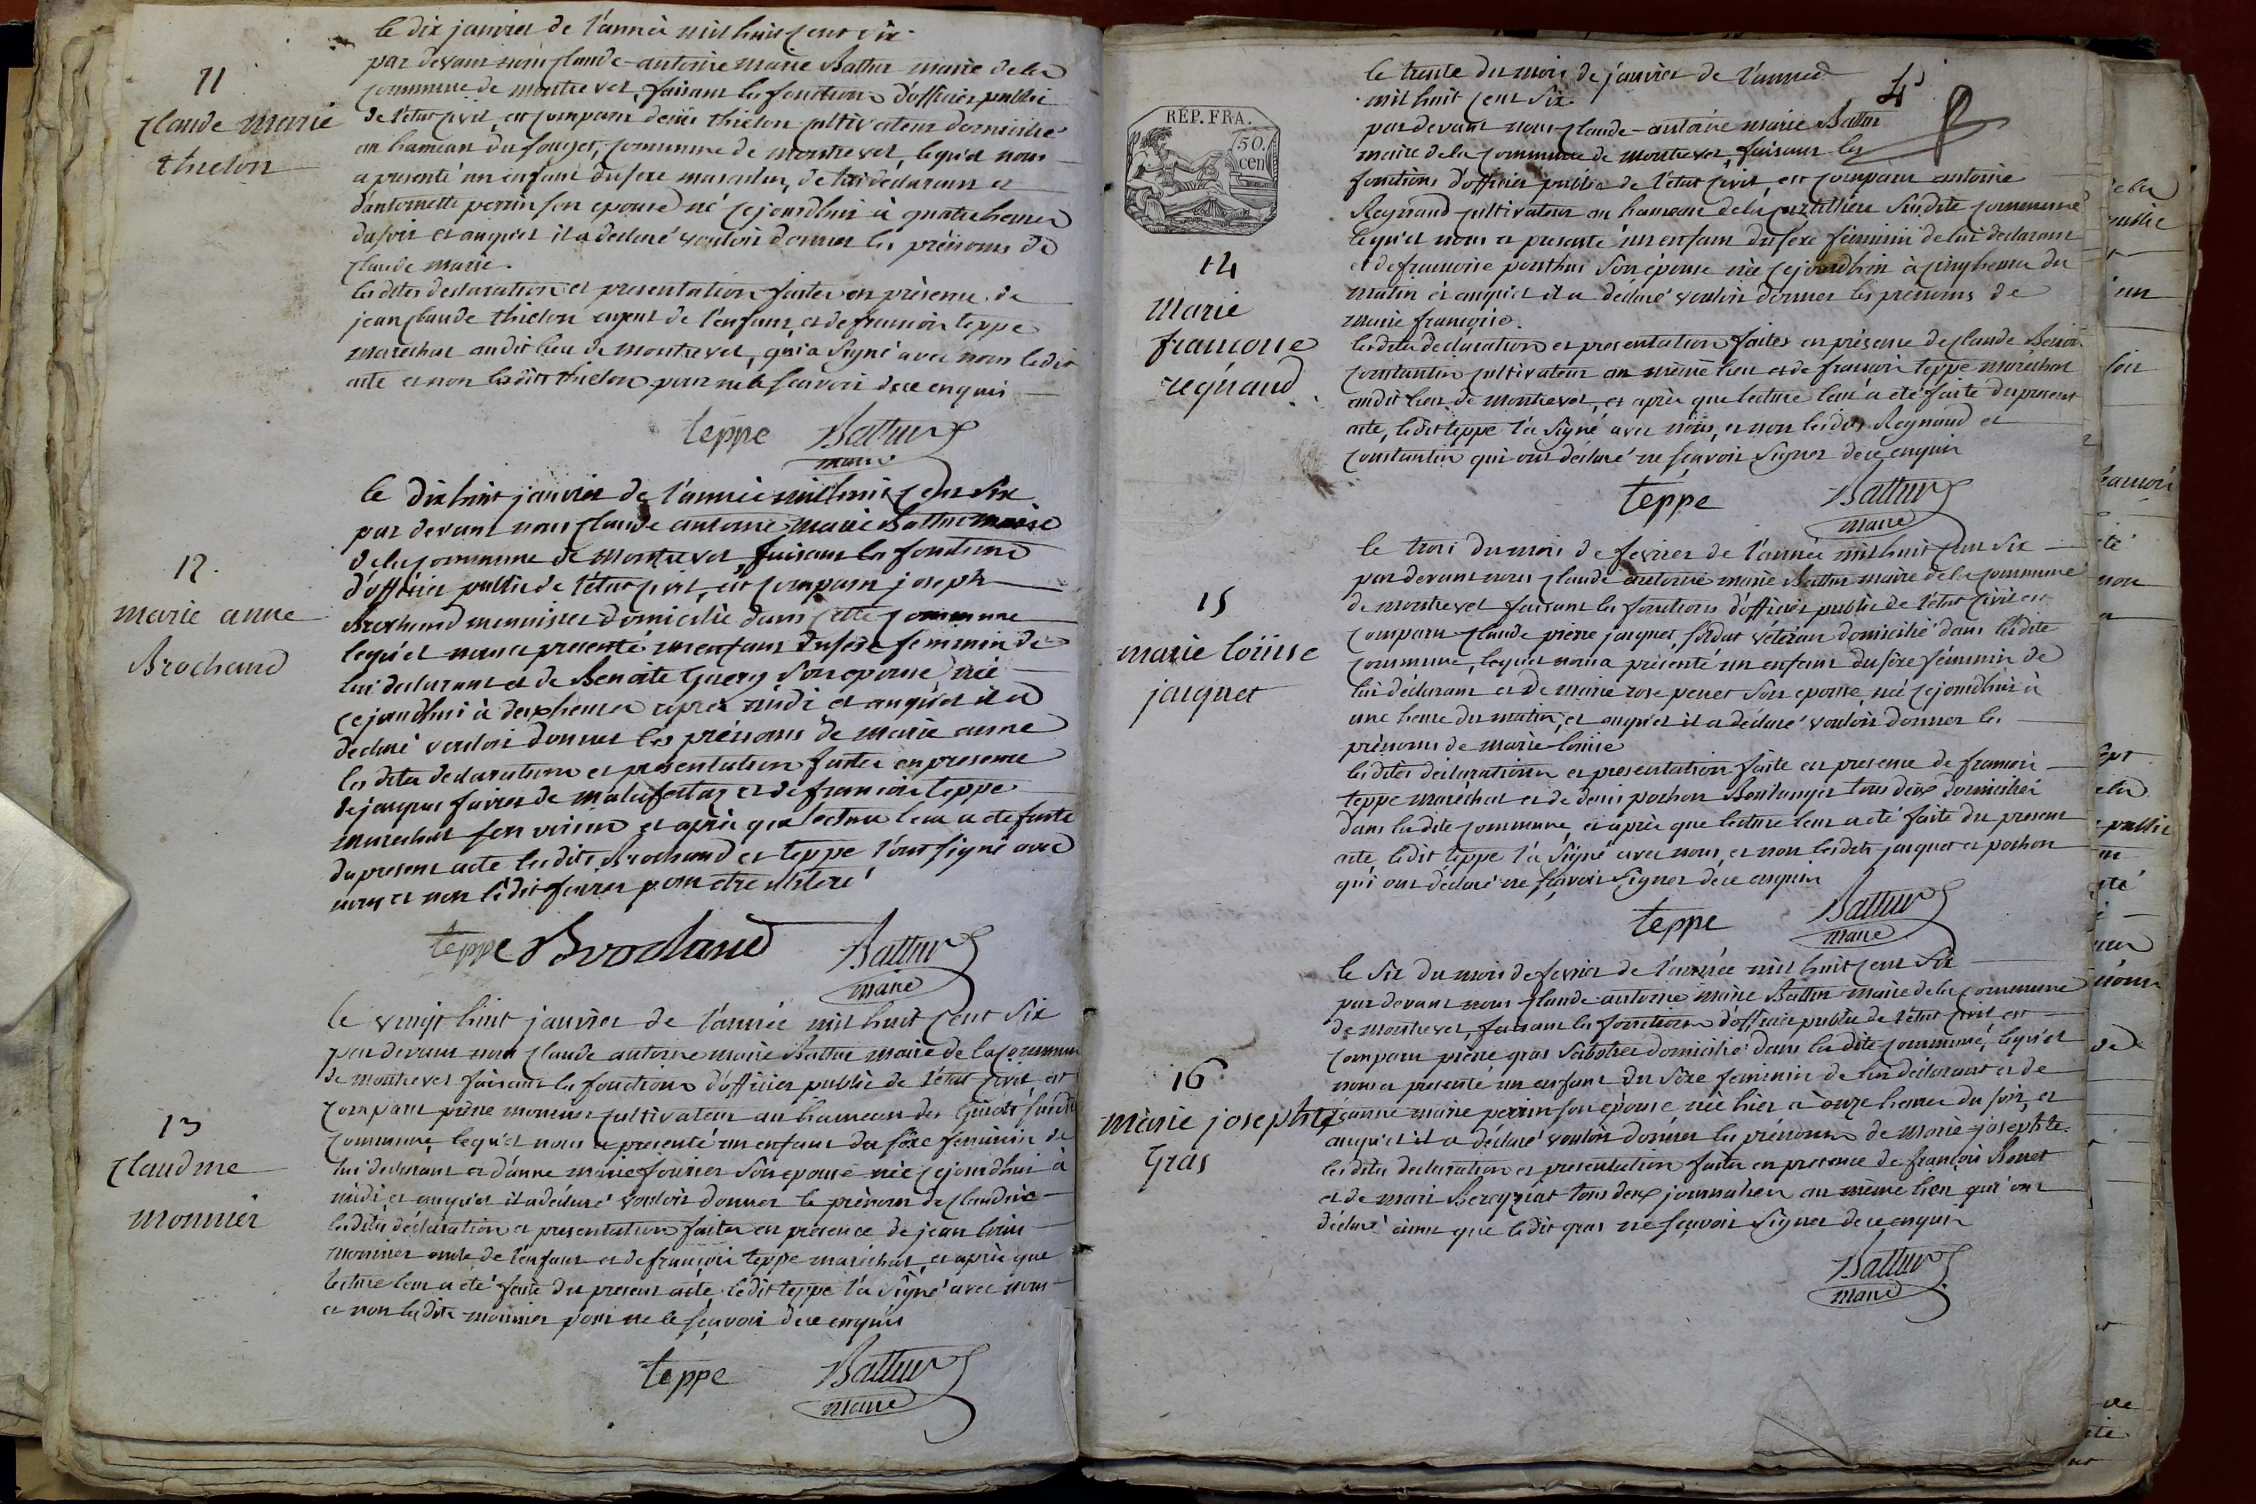 11
claude marie
thielon
le dix janvier de l'année mil huit cent six
par devant nous claude-antoine marie Battur maire de la
commune de montrevel, faisant les fonctions d'officier public
de l'etat civil, est comparu denis thielon cultivateur domicilié
au hameau du, commune de montrevel, lequel nous
a presenté un enfant du sexe masculin, de lui declarant et
d'antoinette perrin son epouse né cejourdhui à quatre heures
du soir et auquel il a declaré vouloir donner les prénoms de
claude marie.
les dites declaration et presentation faites en présence de
jean claude thielon ayeul de l'enfant, et de francois teppe
marechal audit lieu de montrevel, qui a signé avec nous ledit
acte et non lesdits thielon pour ne le scavoir de ce enquis
teppe Battur
maire
12.
marie anne
Brochand
le dix huit janvier de l'année mil huit cent six
par devant nous claude antoine marie Battur maire
de la commune de montrevel, faisant les fonctions
d'officier public de l'état civil, est comparu joseph
Brochand menuisier domicilié dans cette commune
lequel nous a presenté un enfant du sexe feminin de
lui declarant et de Benoite Guery son epouse née
cejourdhui à deux heures après midi et auquel il a
declaré vouloir donner les prénoms de marie anne
les dites declaration et presentation faites en presence
de jacques favier de malafretaz et de francois teppe
marechal son voisin et après que lecture leur a eté faite
du present acte lesdits Brochand et teppe l'ont signé avec
nous et non ledit favier pour etre
teppe Brochand Battur
maire
13
claudine
monnier
le vingt huit janvier de l'année mil huit cent six
par devant nous claude antoine marie Battur maire de la commune
de montrevel faisant les fonctions d'officier public de l'état civil est
comparu pierre monnier cultivateur au hameau des susdite
commune lequel nous a presenté un enfant du sexe féminin de
lui declarant et d'anne marie fournier son epouse née cejourdhui à
midi, et auquel il a déclaré vouloir donner le prénom de claudine
lesdites déclaration et presentation faites en présence de jean louis
monnier oncle de l'enfant et de francois teppe maréchal, et après que
lecture leur a eté faite du present acte ledit teppe l'a signé avec nous
et non lesdits monnier pour ne le scavoir de ce enquis
teppe Battur
maire
4
REP. FRA.
50.
cen
14
marie
francoise
regnaud
le trente du mois de janvier de l'année
mil huit cent six
par devant nous claude-antoine marie Battur
maire de la commune de montrevel, faisant les
fonctions d'officier public de l'état civil, est comparu antoine
Regnaud cultivateur au hameau de la susdite commune
lequel nous a presenté un enfant du sexe féminin de lui declarant
et de francoise ponthus son épouse née cejourdhui à cinq heures du
matin et auquel il a déclaré vouloir donner les prénoms de
marie françoise.
lesdites déclaration et presentation faites en présence de claude Benoit
constantin cultivateur au même lieu et de françois teppe maréchal
audit lieu de montrevel, et après que lecture leur a eté faite du present
acte, ledit teppe l'a signé avec nous, et non lesdits Regnaud et
constantin qui ont déclaré ne scavoir signer de ce enquis
teppe Battur
maire
15
marie loüise
jacquet
le trois du mois de fevrier de l'année mil huit cent six
par devant nous claude antoine marie Battur maire de la commune
de montrevel faisant les fonctions d'officier public de l'état civil est
comparu claude pierre jacquet, soldat vétéran domicilié dans ladite
commune, lequel nous a présenté un enfant du sexe féminin de
lui déclarant et de marie rose penet son epouse, née cejourdhui à
une heure du matin, et auquel il a déclaré vouloir donner les
prénoms de marie loüise
lesdites déclaration et presentation faite en presence de francois
teppe maréchal et de denis pochon Boulanger tous deux domiciliés
dans ladite commune, et après que lecture leur a eté faite du present
acte, ledit teppe l'a signé avec nous, et non lesdits jacquet et pochon
qui ont declaré ne scavoir signer de ce enquis
teppe Battur
maire
16
marie josephte
Gras
le six du mois de fevrier de l'année mil huit cent six
par devant nous claude antoine marie Battur maire de la commune
de montrevel, faisant les fonctions d'officier public de l'état civil est
comparu pierre gras sabotier domicilié dans ladite commune, lequel
nous a presenté un enfant du sexe feminin de lui déclarant et de
jeanne marie perrin son epouse née hier à onze heures du soir, et
auquel il a déclaré vouloir donner les prénoms de marie josephte.
lesdites declaration et presentation faites en presence de françois Bonet
et de mari Berezziat tous deux journalier au même lieu qui ont
déclaré ainsi que ledit gras ne sçavoir signer de ce enquis
Battur
maire